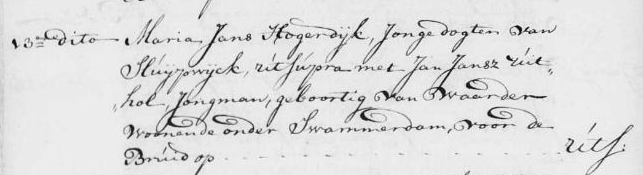 13en dito Maria Jans Hogerdijk, Jonge dogter van
Sluÿpwÿck, út súpra met Jan Jansz Uÿt-
hol, Jongman, geboortig van Waarder
Woonende onder Swammerdam, voor de
Bruid op . . . . . . . . . . . . út S.